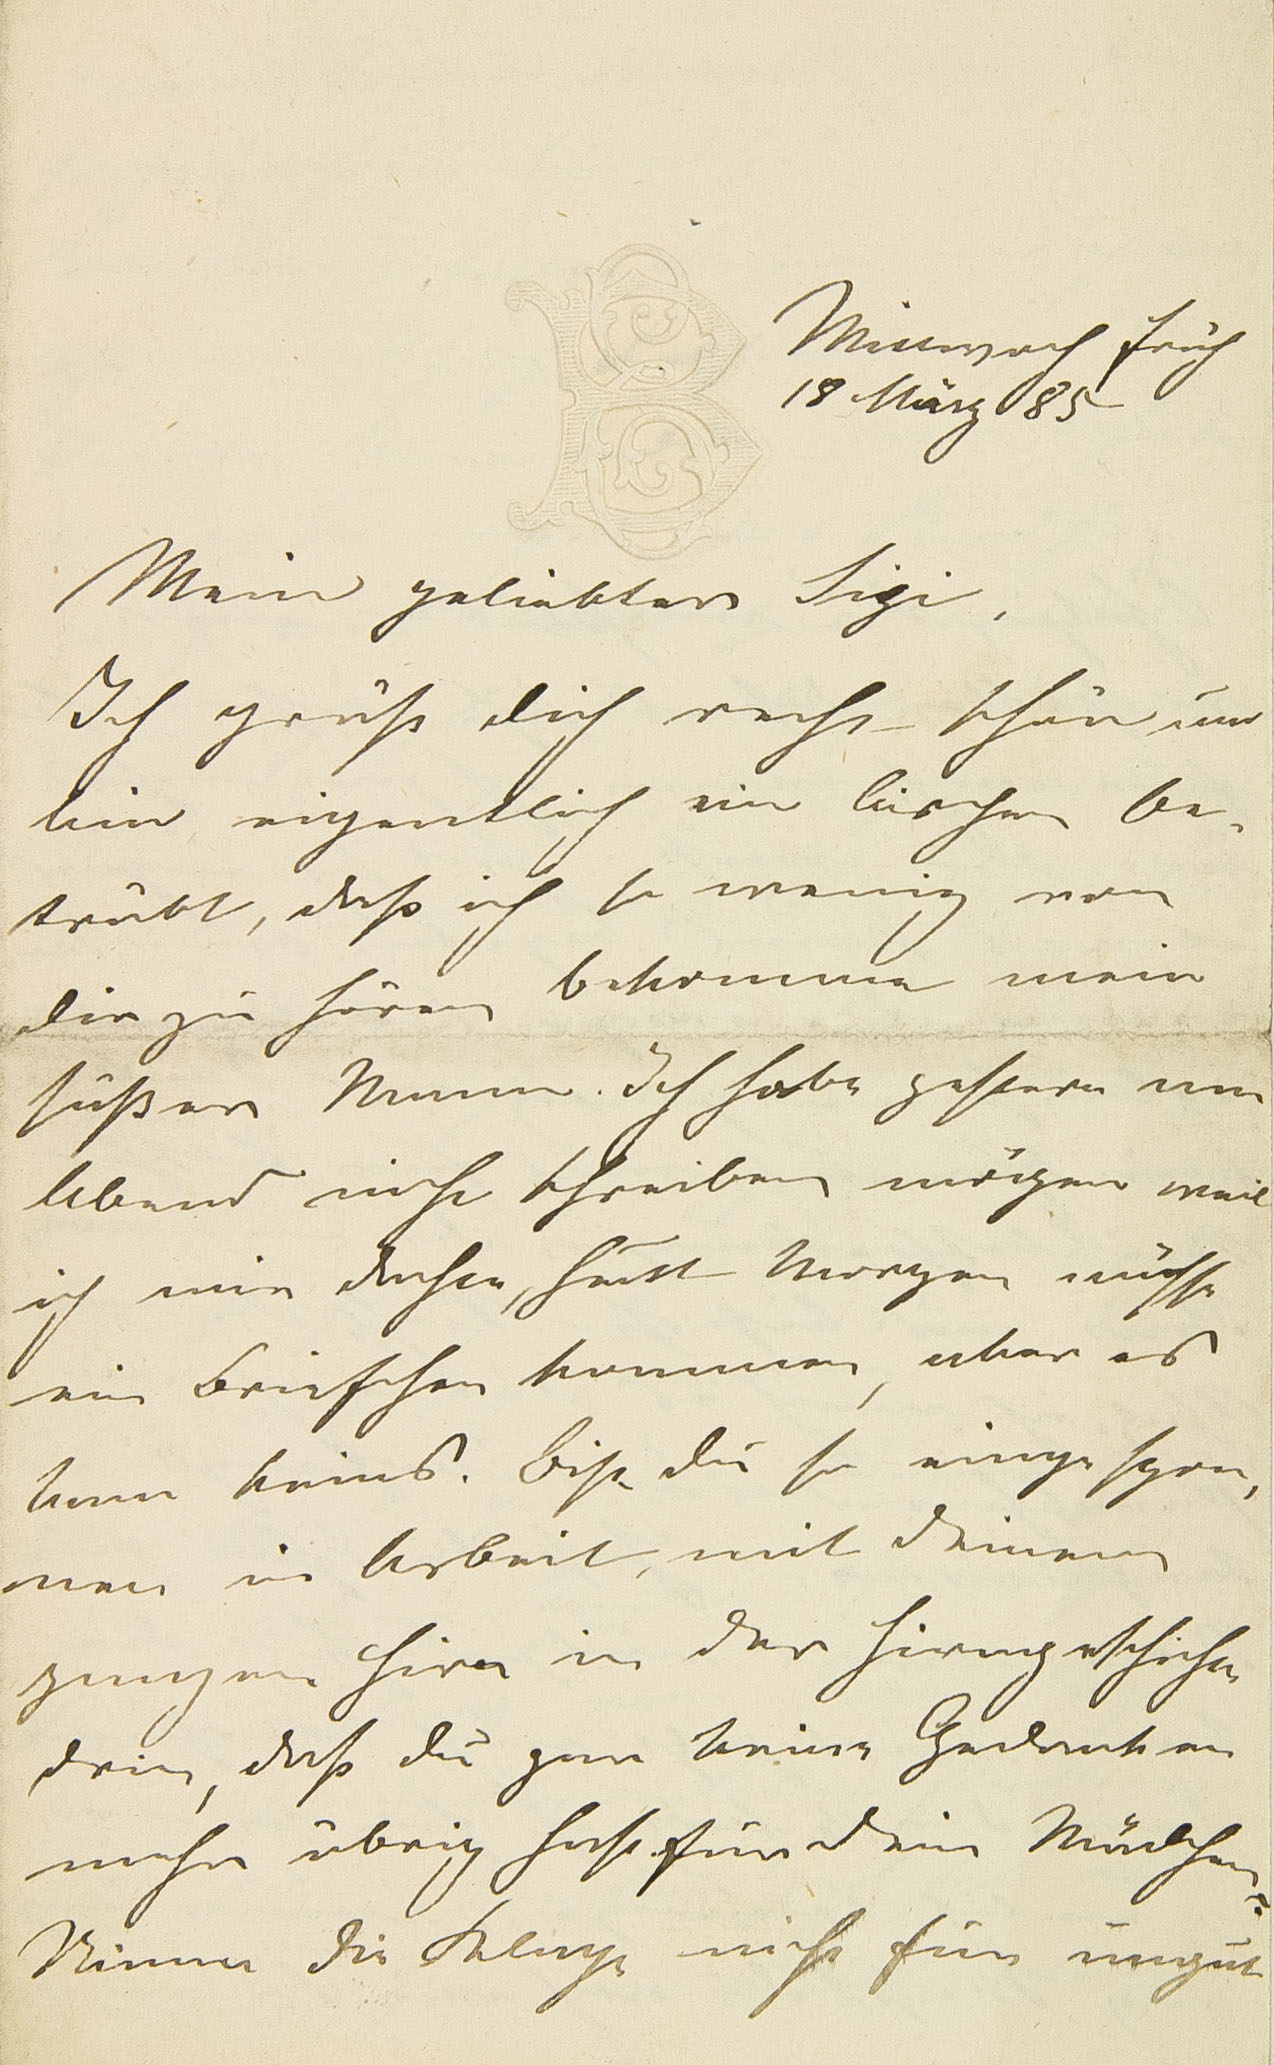 B
Mittwoch früh
18 März 85
Mein geliebter Sigi,
Ich grüße dich recht schön und
bin eigentlich ein bischen be-
trübt, daß ich so wenig von
dir zu hören bekomme mein
süßer Mann. Ich habe gestern am
Abend nicht schreiben mögen weil
ich mir dachte, heute Morgen müsse
ein Briefchen kommen, aber es
kam keins. Bist du so eingespon-
nen in Arbeit, mit deinem
ganzen Hirn in der Hirngeschichte
drin, daß du gar keine Gedanken
mehr übrig hast für dein Mädchen?
Nimm die Klage nicht für ungut